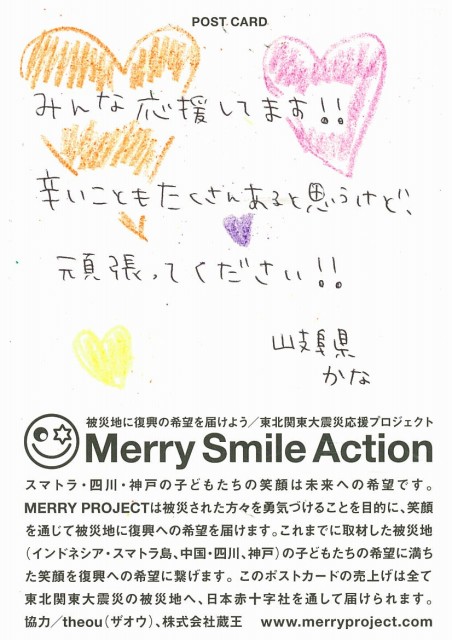 POST CARD
みんな応援してます!!
辛いこともたくさんあると思うけど、
頑張ってください!!
岐阜県
かな
被災地に復興の希望を届けよう/東北関東大震災応援プロジェクト
Merry Smile Action
スマトラ・四川・神戸の子どもたちの笑顔は未来への希望です。
MERRY PROJECTは被災された方々を勇気づけることを目的に、笑顔
を通じて被災地に復興への希望を届けます。これまでに取材した被災地
(インドネシア・スマトラ島、中国・四川、神戸)の子どもたちの希望に満ち
た笑顔を復興への希望に繋げます。このポストカードの売上げは全て
東北関東大震災の被災地へ、日本赤十字社を通して届けられます。
協力/theou(ザオウ)、株式会社蔵王 www.merryproject.com